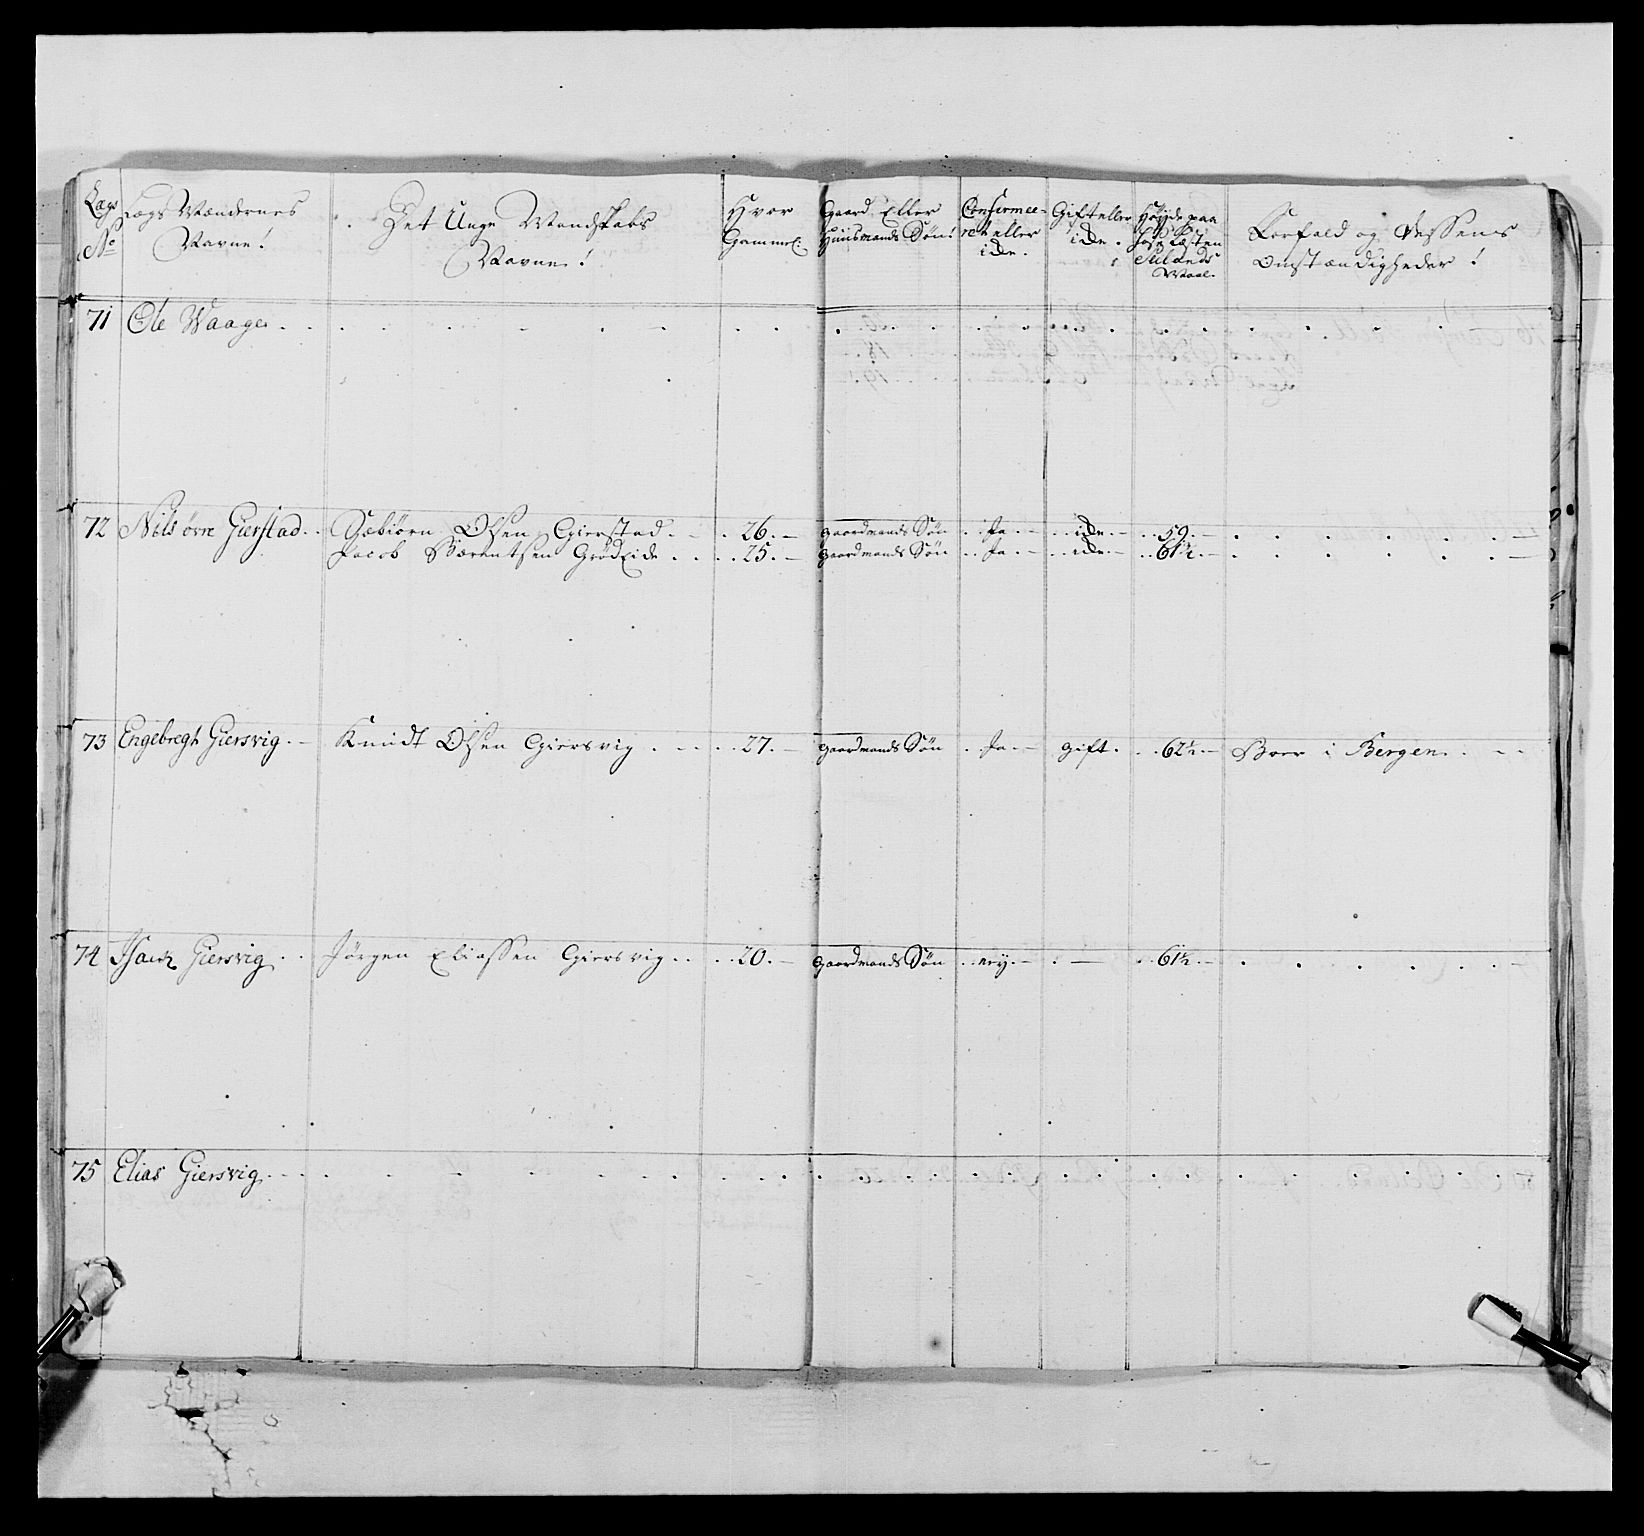 Lægs No Lægs Mændernes Navne! Det Unge Mandskabs Navne! Hvor Gammel. Gaard Eller Huusmands Søn! Confirmeeret eller ide. Gift eller ide. Høyde paa Sælands Maal. Forfald og dessens Omstændigheder!
71 Ole Waage
72 Nils övre Gierstad Sæbiörn Olsen Gierstad 26. gaardmands Søn Ja ide 59.
Jacob Bærentsen Grødeide 25. gaardmands Søn Ja ide 61½
73 Engebregt Giersvig Knudt Olsen Giersvig 27. gaardmands Søn Ja gift. 62½ Boer i Bergen
74 Isach Giersvig Jørgen Eliassen Giersvig 20. gaardmands Søn ney 61½
75 Elias Giersvig